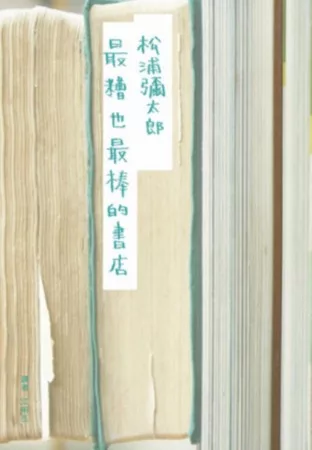 松浦彌太郎
最糟也最棒的書店